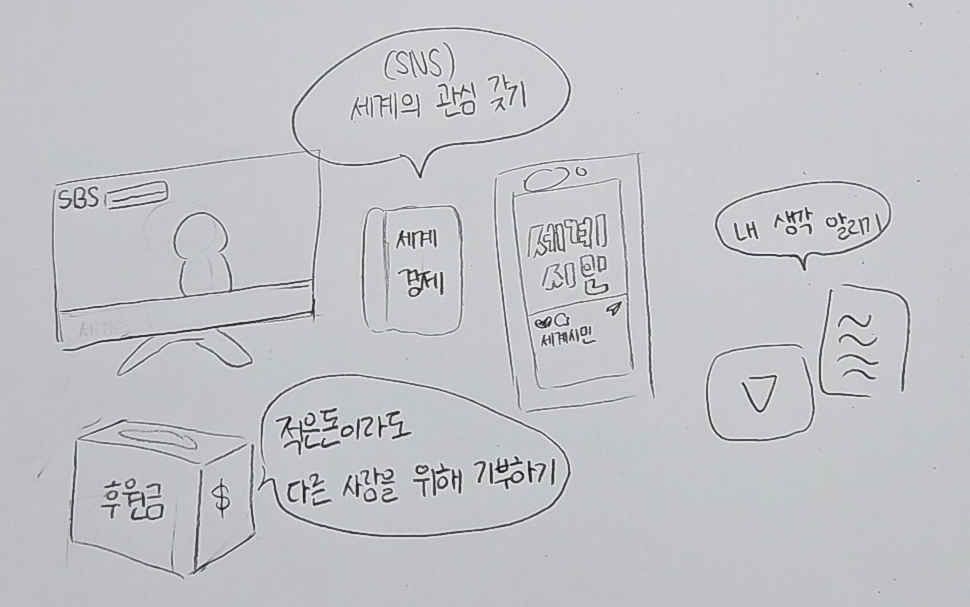 (SNS)
세계의 관심 갖기
SBS
세계
경제
세계
시민
세계시민
내 생각 알리기
적은돈이라도
다른 사람을 위해 기부하기
후원금
$